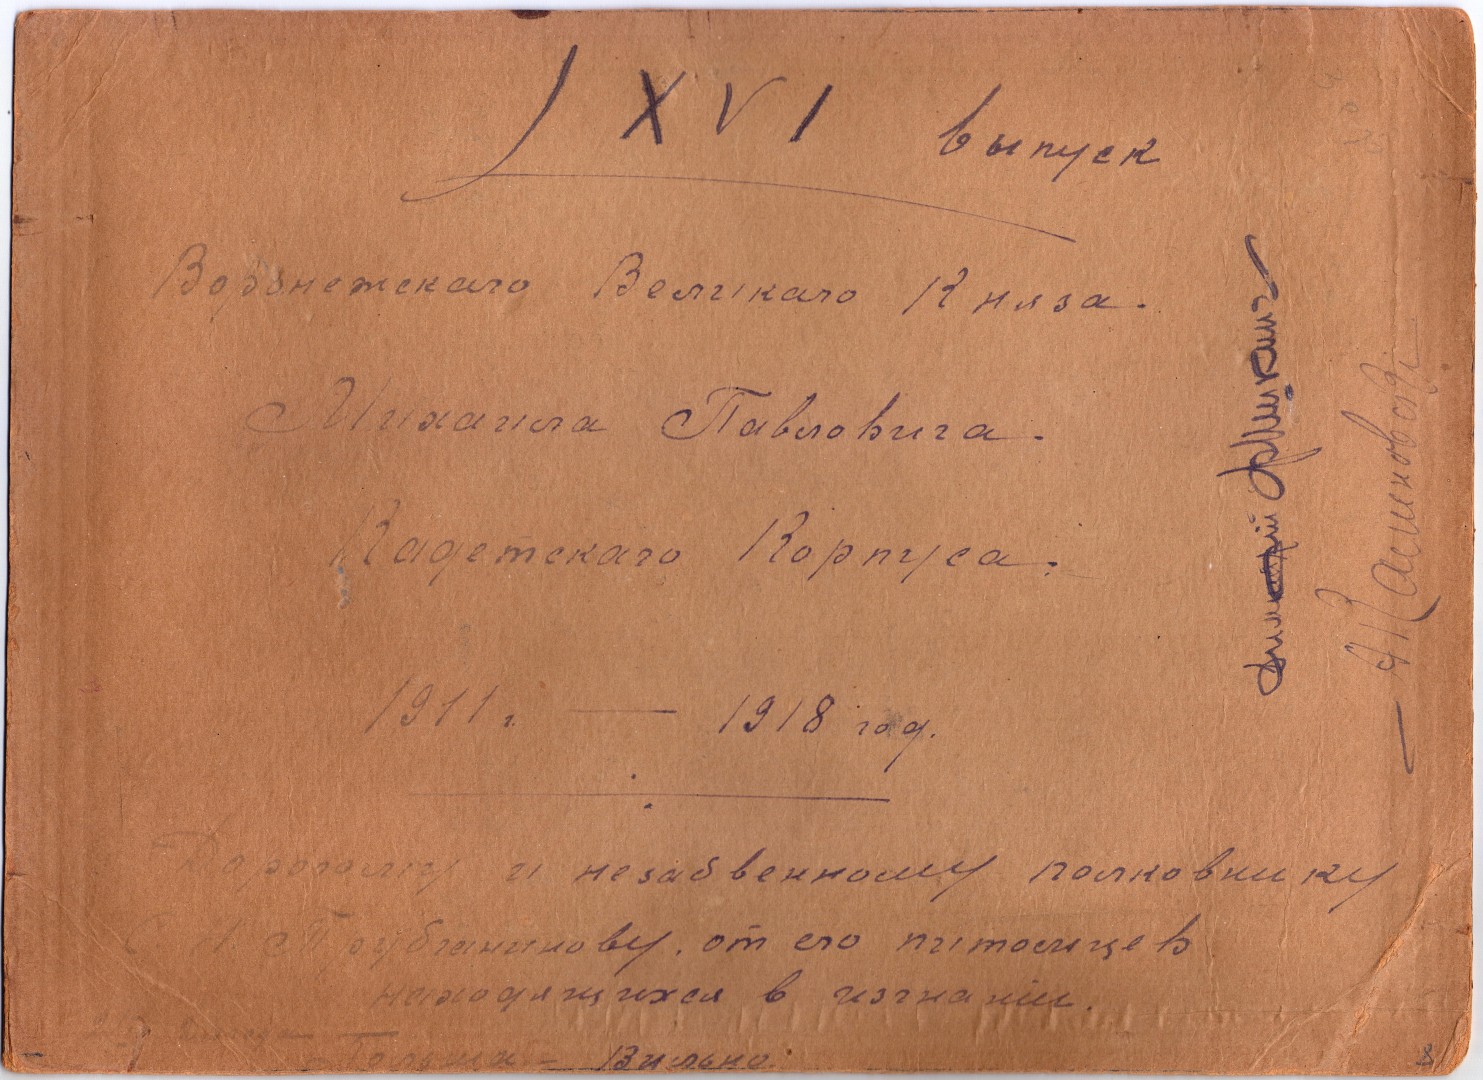 LXVI выпуск
Воронежскаго Великаго Князя.
Михаила Павловича.
Кадетскаго Корпуса.
1911 г. — 1918 год.
Дорогому и незабвенному полковнику
Трубчанинову. от его питомцев
находящихся в изгнании.
Польша - Вильно.
А Калиновскі
8